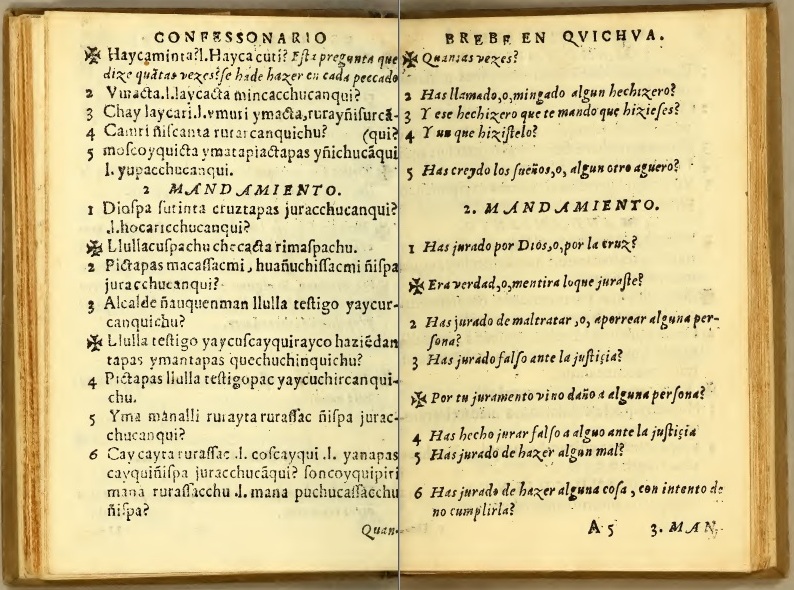 CONFESSONARIO
✠ Haycaminta?l.Hayca cuti? Esta pregunta que
dize quãtas vezes? se hade hazer en cada peccado
2 Viracta.l.laycacta mincacchucanqui?
3 Chay laycari.l.vmuri ymacta,rurayñisurcã-
4 Camri ñiscanta rurarcanquichu? (qui?
5 moscoyquicta ymatapiactapas yñichucãqui
l. yupacchucanqui.
2 MANDAMIENTO.
1 Diospa sutinta cruztapas juracchucanqui?
.l.hocaricchucanqui?
✠ Llullacuspachu checacta rimaspachu.
2 Pictapas macassacmi, huañuchissacmi ñispa
juracchucanqui?
3 Alcalde ñauquenman llulla testigo yaycur-
canquichu?
✠ Llulla testigo yaycuscayquirayco haziẽdan
tapas ymantapas quechuchinquichu?
4 Pictapas llulla testigopac yaycuchircanqui-
chu.
5 Yma mánalli rurayta rurassac ñispa jurac-
chucanqui?
6 Cay cayta rurassac .l. coscayqui .l. yanapas
cayquiñispa juracchucãqui? soncoyquipiri
mana rurassacchu .l. mana puchucassacchu
ñispa?
Quan-
BREBE EN QVICHVA.
✠ Quantas vezes?
2 Has llamado,o,mingado algun hechizero?
3 Y ese hechizero que te mando que hizieses?
4 Y que hizistelo?
5 Has creydo los sueños,o, algun otro aguero?
2. MANDAMIENTO.
1 Has jurado por Dios,o,por la cruz?
✠ Era verdad,o,mentira loque juraste?
2 Has jurado de maltratar ,o, aporrear alguna per-
sona?
3 Has jurado falso ante la justicia?
✠ Por tu juramento vino daño a alguna persona?
4 Has hecho jurar falso a alguo ante la justicia
5 Has jurado de hazer algun mal?
6 Has jurado de hazer alguna cosa , con intento de
no cumplirla?
A 5 3. MAN.